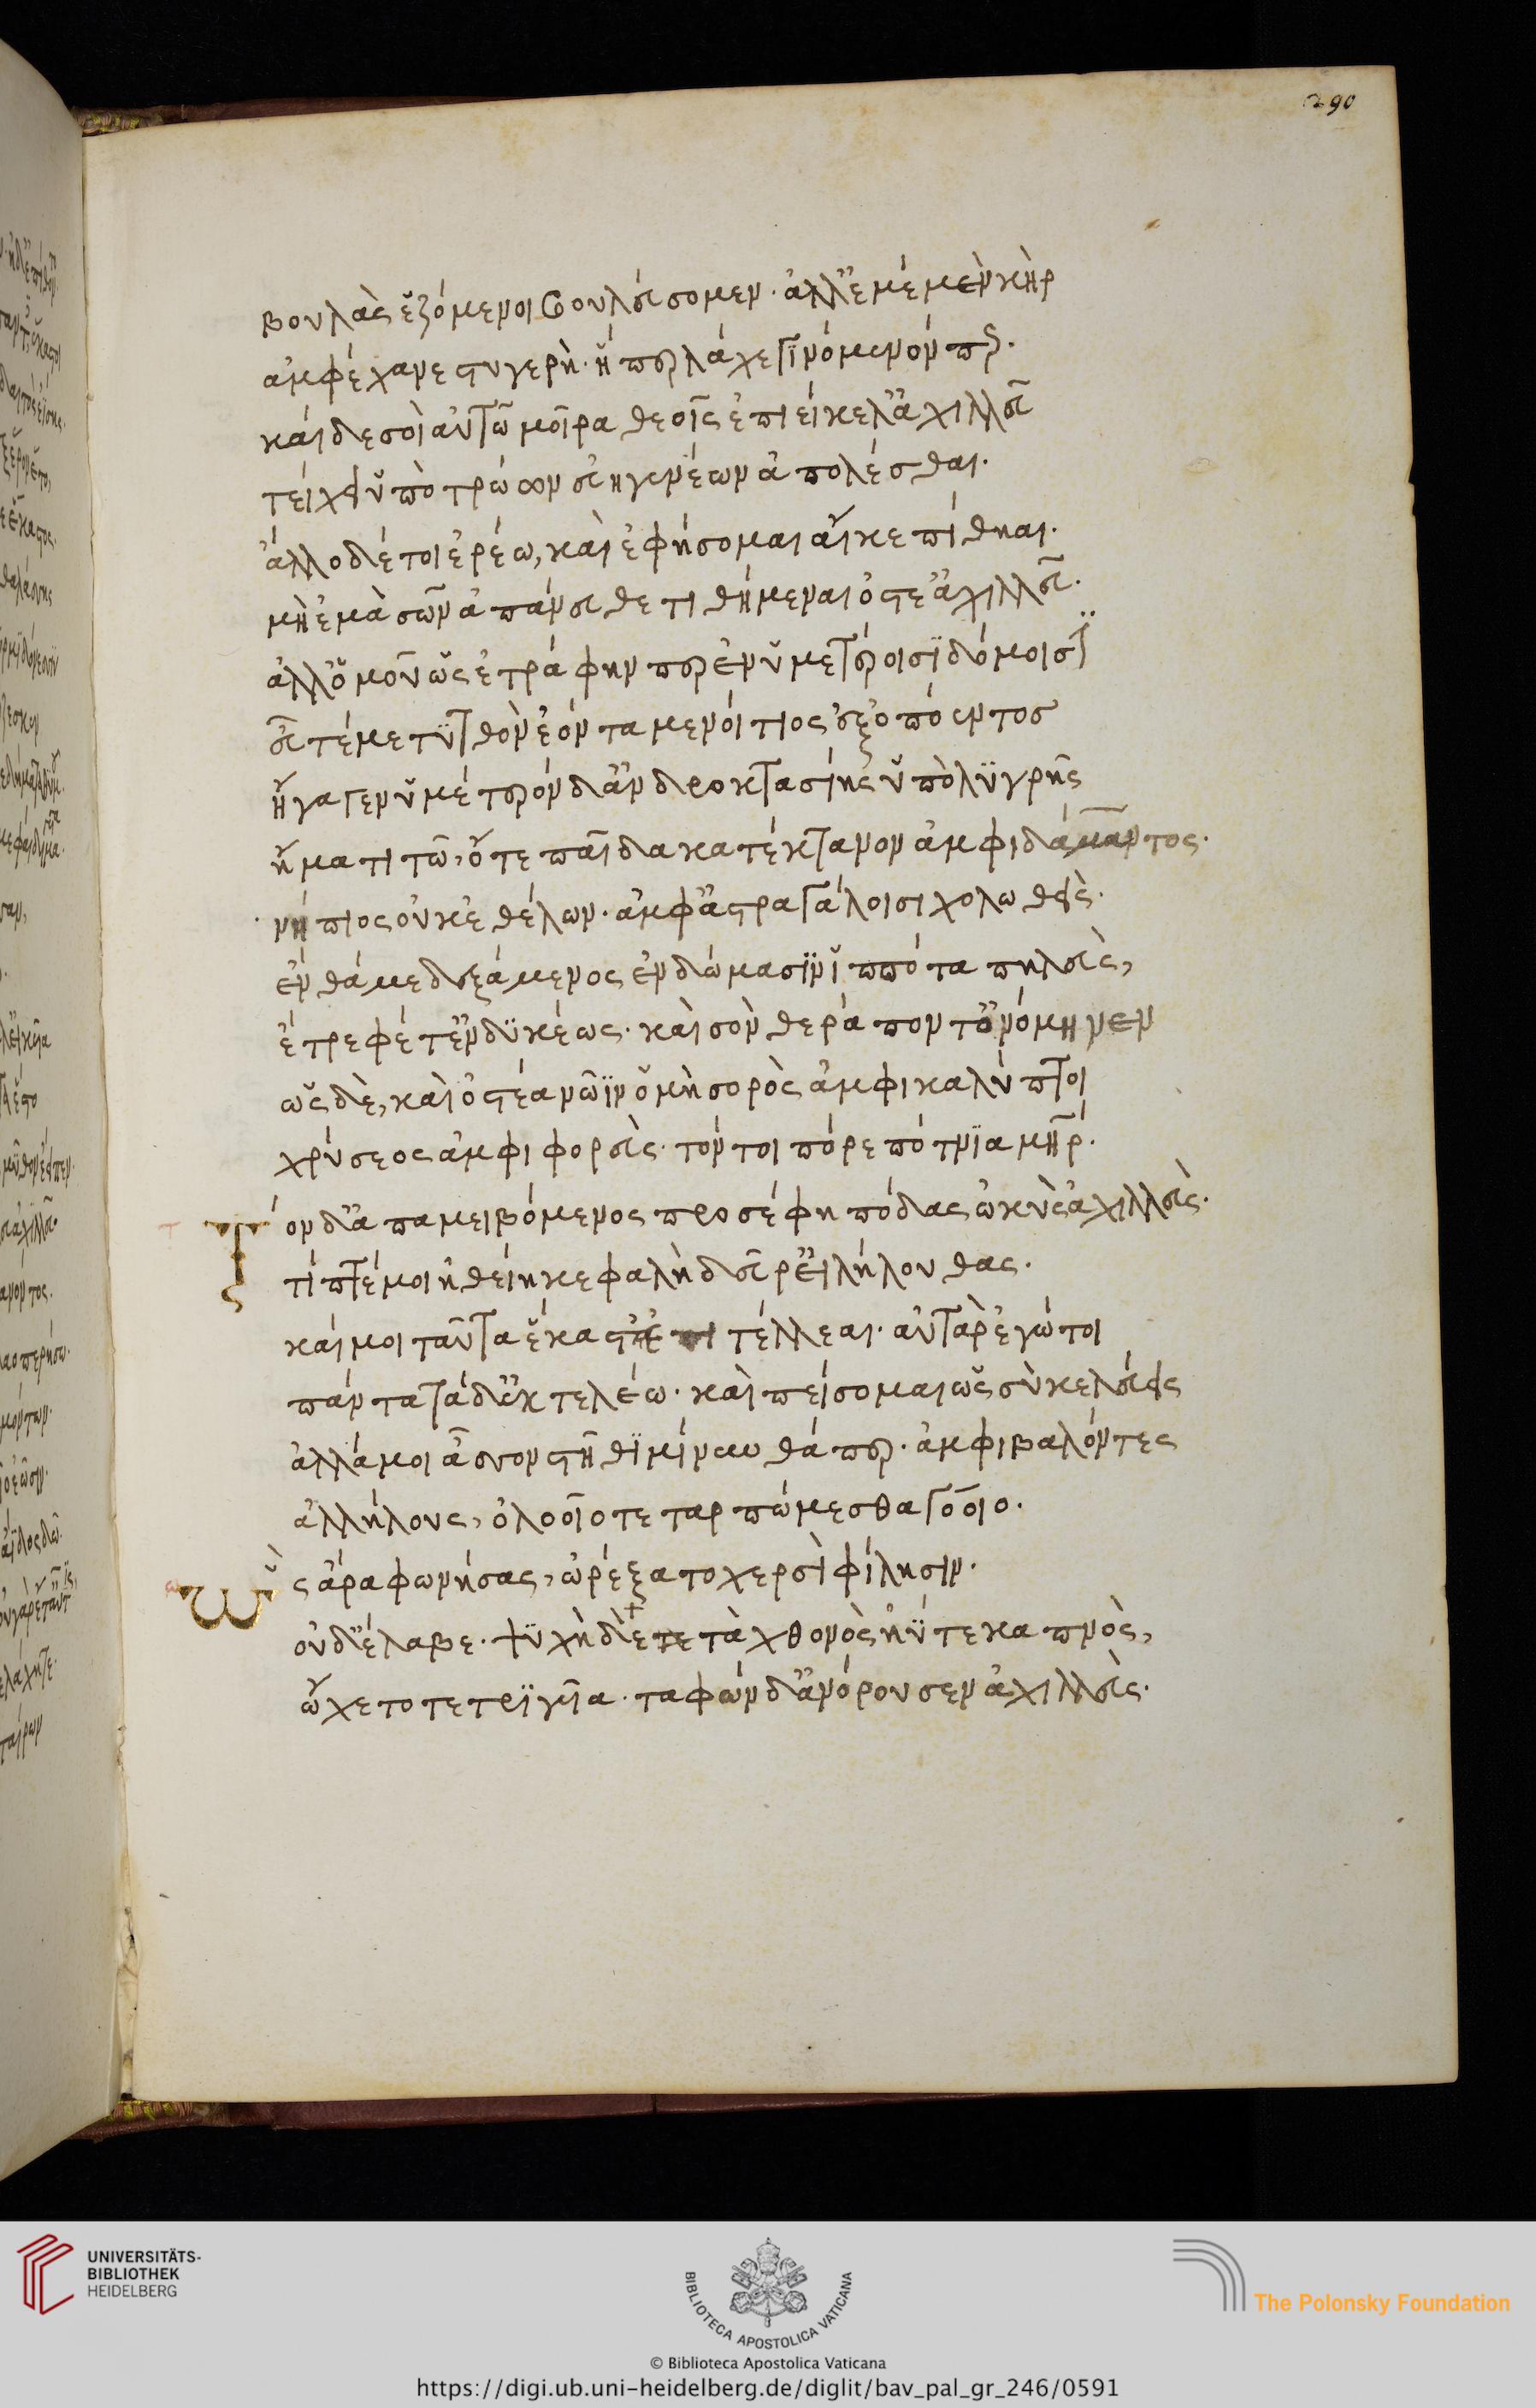 290
βουλὰς ἑζόμενοι βουλεύσομεν· ἀλλ' ἐμὲ μὲν κὴρ
ἀμφέχανε στυγερὴ· ἥπερ λάχε γϊνόμενόν περ·
καὶ δὲ σοὶ αὐτῶ μοῖρα θεοῖς ἐπιείκελ' ἀχιλλεῦ
τείχει ὕπο τρώων εὐηγενέων ἀπολέσθαι·
ἄλλο δέ τοι ἐρέω, καὶ ἐφήσομαι αἴκε πίθηαι·
μὴ ἐμὰ σῶν ἀπάνευθε τιθήμεναι ὀστέ' ἀχιλλεῦ·
ἀλλ' ὁμοῦ ὡς ἐτράφην περ ἐν ὑμετέροισϊ δόμοισϊ
εὖτέ με τϋτθὸν ἐόντα μενοίτιος ἐξ ὀπόεντος
ἤγαγεν ὑμέτερόνδ' ἀνδροκτασίης ὕπο λϋγρῆς
ἤματι τῶ, ὅτε παῖδα κατέκτανον ἀμφιδάμαντος·
νήπιος οὐκ ἐθέλων· ἀμφ' ἀστραγάλοισι χολωθεὶς·
ἔνθά με δεξάμενος ἐν δώμασϊν ἱππότα πηλεὺς,
ἔτρεφέ τ' ἐνδϋκέως· καὶ σὸν θεράποντ' ὀνόμηνεν
ὣς δὲ, καὶ ὀστέα νῶϊν ὁμὴ σορὸς ἀμφικαλύπτοι
χρύσεος ἀμφιφορεὺς· τόν τοι πόρε πότνϊα μήτηρ·
Τόν δ' ἀπαμειβόμενος προσέφη πόδας ὠκὺς ἀχιλλεὺς·
τίπτέ μοι ἠθείη κεφαλὴ δεῦρ' εἰλήλουθας·
καί μοι ταῦτα ἕκαστ' ἐπιτέλλεαι· αὐτὰρ ἐγώ τοι
πάντα τάδ' ἐκτελέω· καὶ πείσομαι ὡς σὺ κελεύεις
ἀλλά μοι ἆσσον στῆθϊ μίνυνθά περ· ἀμφιβαλόντες
ἀλλήλους, ὀλοοῖο τεταρπώμεσθα γόοιο·
Ὣς ἄρα φωνήσας, ὠρέξατο χερσὶ φίλησιν·
οὐδ' ἔλαβε· ψϋχὴ δὲ κατὰ χθονὸς ἠΰτε καπνὸς,
ᾤχετο τετρϊγυῖα· ταφών δ' ἀνόρουσεν ἀχιλλεὺς·
UNIVERSITÄTS-
BIBLIOTHEK
HEIDELBERG
BIBLIOTECA APOSTOLICA VATICANA
The Polonsky Foundation
© Biblioteca Apostolica Vaticana
https://digi.ub.uni-heidelberg.de/diglit/bav_pal_gr_246/0591